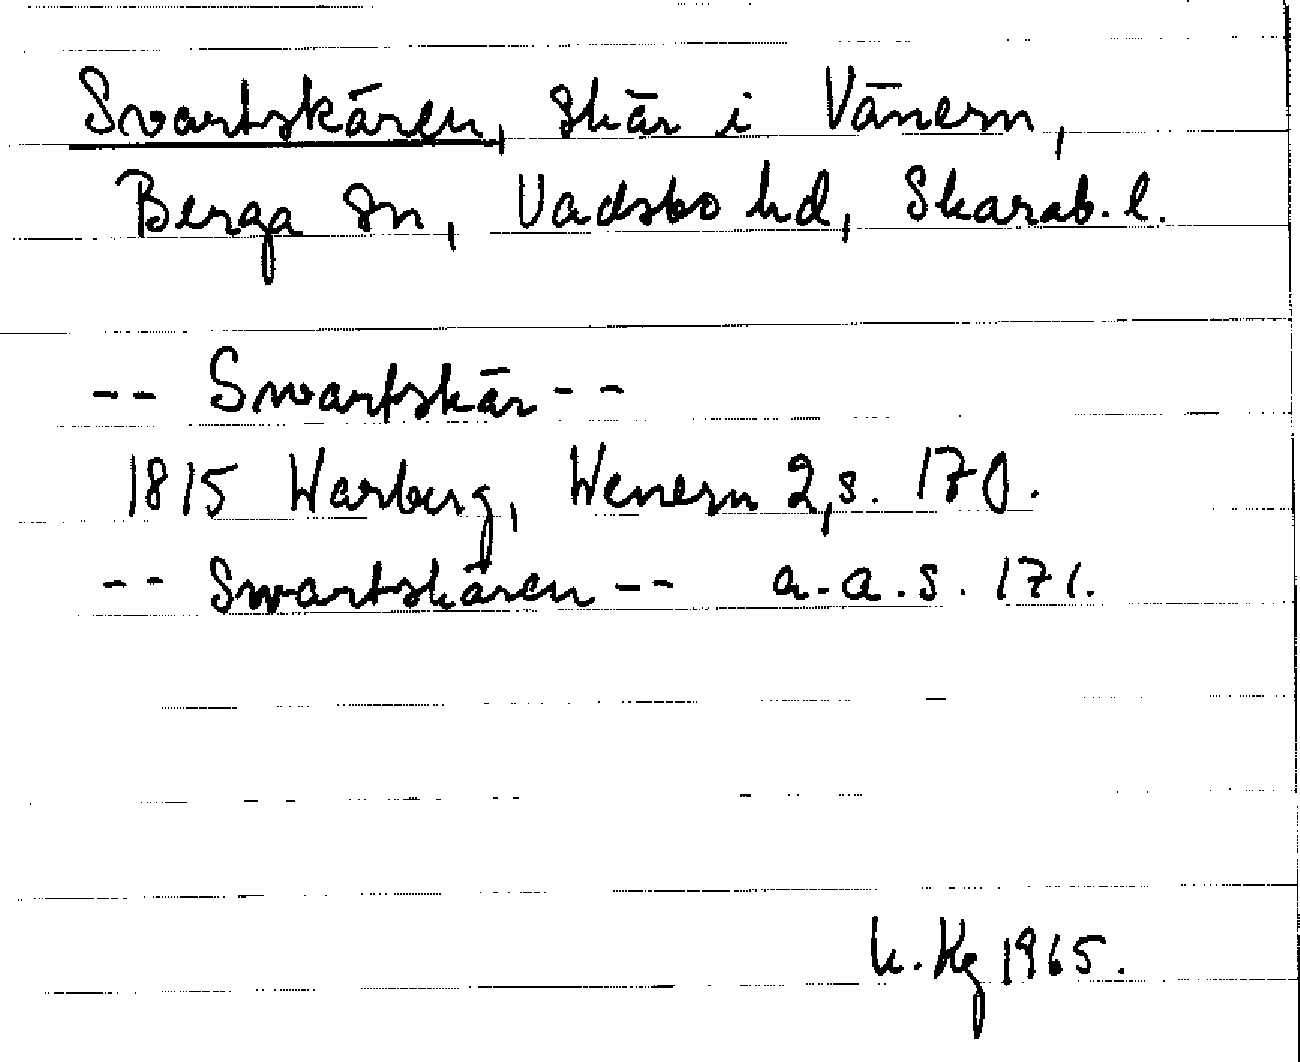 Svartskären, skär i Vänern,
Berga sn, Vadsbo hd, Skarab. l.
-- Swartskär --
1815 Warberg, Wenern 2, s. 170.
-- Swartskären -- a.a.s. 171.
K. Kg 1965.